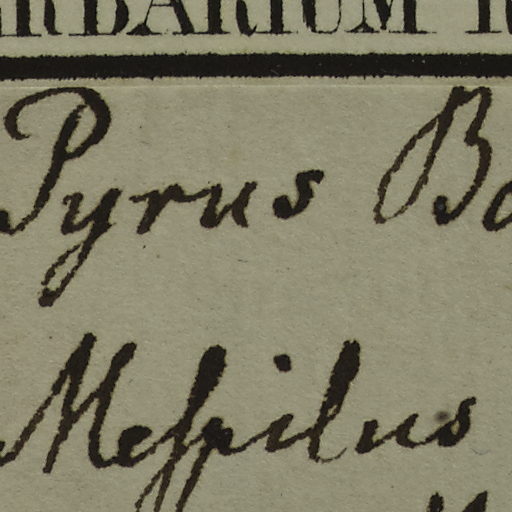 ERBARIUM
Pyrus Ba
Meſpilus